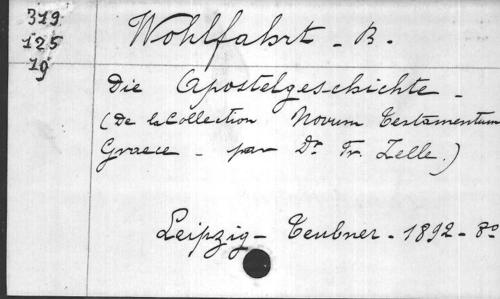 319
125
19
Wohlfahrt - B.
Die Apostelgeschichte -
(De la Collection Novum Testamentum
Graece - par Dr Fr. Zelle.)
Leipzig - Teubner - 1892 - 8o